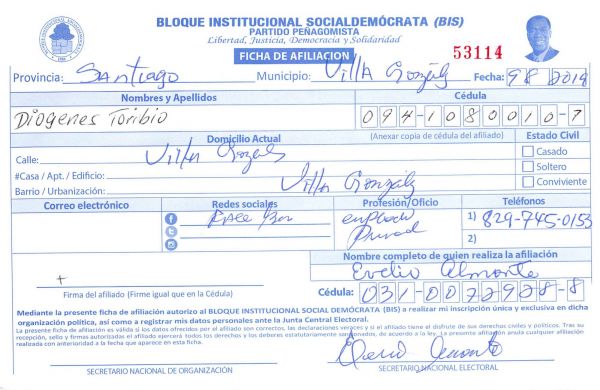 BLOQUE INSTITUCIONAL SOCIALDEMÓCRATA (BIS)
PARTIDO PEÑAGOMISTA
Libertad, Justicia, Democracia y Solidaridad
FICHA DE AFILIACION
53114
Provincia: Santiago Municipio: Villa González Fecha: 2019
Nombres y Apellidos Cédula
Diogenes Toribio 094-1080010-7
Domicilio Actual (Anexar copia de cédula del afiliado) Estado Civil
Calle: Villa González Casado
#Casa / Apt. / Edificio: Soltero
Barrio / Urbanización: Villa González Conviviente
Correo electrónico Redes sociales Profesión/Oficio Teléfonos
empleado 1) 829-745-0153
Privado 2)
Nombre completo de quien realiza la afiliación
+ Evelio Almonte
Firma del afiliado (Firme igual que en la Cédula) Cédula: 031-0072928-8
Mediante la presente ficha de afiliación autorizo al BLOQUE INSTITUCIONAL SOCIAL DEMÓCRATA (BIS) a realizar mi inscripción única y exclusiva en dicha
organización política, así como a registrar mis datos personales ante la Junta Central Electoral.
La presente ficha de afiliación es válida si los datos ofrecidos por el afiliado son correctos, las declaraciones veraces y si el afiliado tiene el disfrute de sus derechos civiles y políticos. Tras su
recepción, sello y firmas autorizadas el afiliado ejercerá todos los derechos y los deberes estatutariamente sancionados, de acuerdo a la ley. La presente afiliación anula cualquier afiliación
realizada con anterioridad a la fecha que aparece en esta ficha.
Evelio Almonte
SECRETARIO NACIONAL DE ORGANIZACIÓN SECRETARIO NACIONAL ELECTORAL